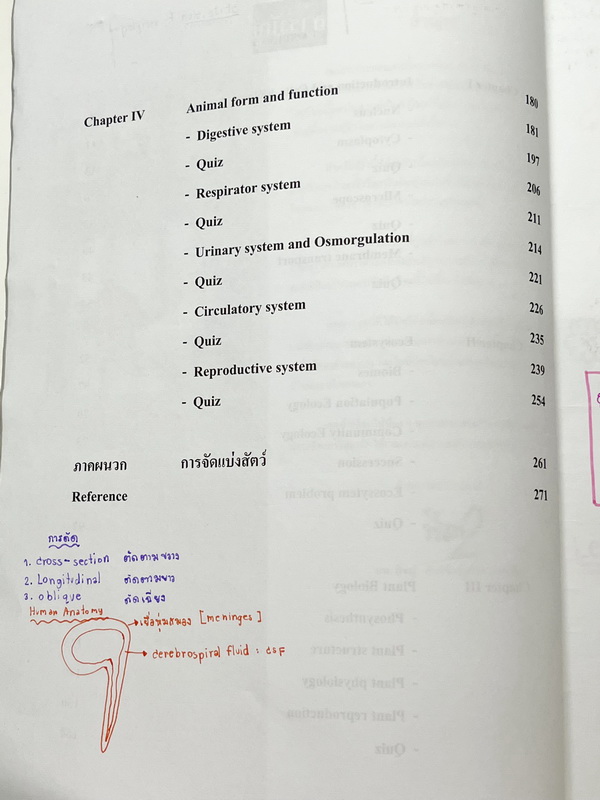 Chapter IV Animal form and function 180
- Digestive system 181
- Quiz 197
- Respirator system 206
- Quiz 211
- Urinary system and Osmorgulation 214
- Quiz 221
- Circulatory system 226
- Quiz 235
- Reproductive system 239
- Quiz 254
ภาคผนวก การจัดแบ่งสัตว์ 261
Reference 271
การตัด
1. cross-section ตัดตามขวาง
2. Longitidinal ตัดตามยาว
3. oblique ตัดเฉียง
Human Anatomy
เยื่อหุ้มสมอง [meninges]
cerebrospiral fluid : CSF